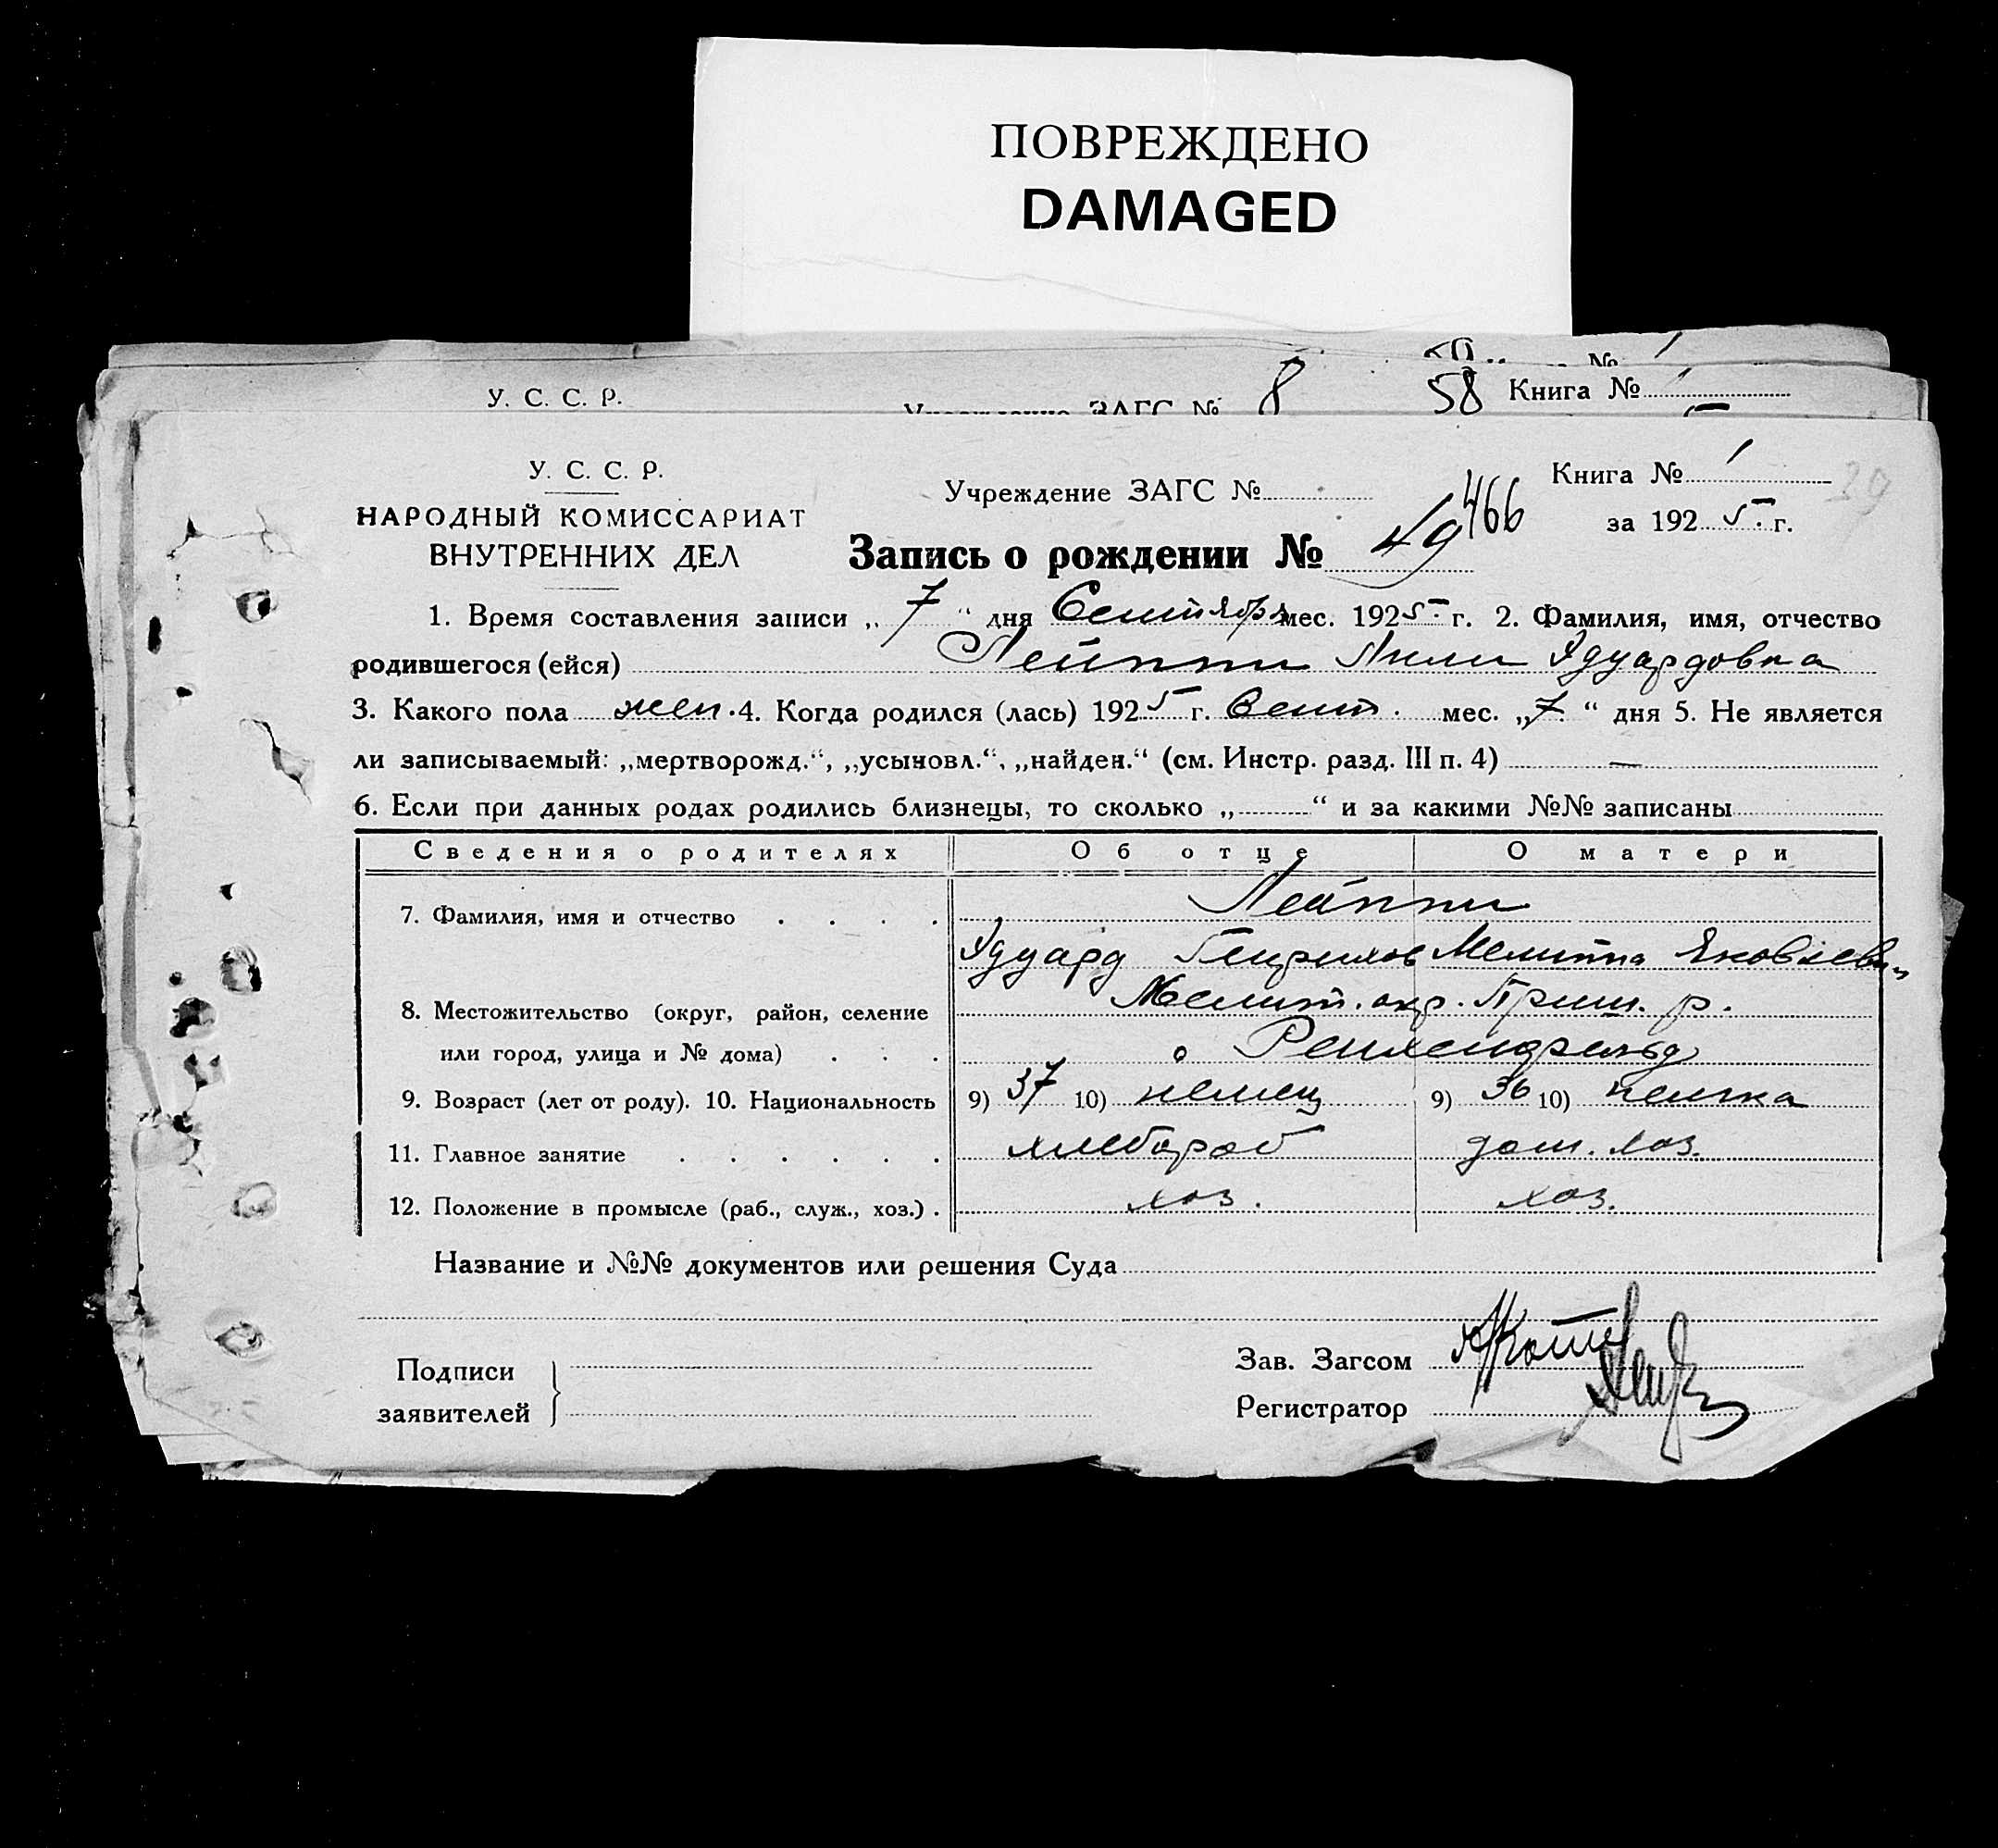 ПОВРЕЖДЕНО
DAMAGED
У. С. С. Р.
ЗАГС № 8
58 Книга №
У. С. С. Р.
НАРОДНЫЙ КОМИССАРИАТ
ВНУТРЕННИХ ДЕЛ
Учреждение ЗАГС №
Книга № 1
39
за 1925 г.
Запись о рождении № 49
466
1. Время составления записи „7“ дня Сентября мес. 1925 г. 2. Фамилия, имя, отчество
родившегося (ейся) Лейппи Лили Эдуардовна
3. Какого пола жен. 4. Когда родился (лась) 1925 г. Сент. мес. „7.“ дня 5. Не является
ли записываемый: „мертворожд.“, „усыновл.“, „найден.“ (см. Инстр. разд. III п. 4) —
6. Если при данных родах родились близнецы, то сколько „ “ и за какими №№ записаны
Сведения о родителях Об отце О матери
7. Фамилия, имя и отчество Лейппи
Эдуард Генрихов Мелитта Яковлевн
8. Местожительство (округ, район, селение Мелит. окр. Приш. р.
или город, улица и № дома) Рейхенфельд
9. Возраст (лет от роду). 10. Национальность 9) 37 10) немец 9) 36 10) немка
11. Главное занятие хлебороб дом. хоз.
12. Положение в промысле (раб., служ., хоз.) хоз. хоз.
Название и №№ документов или решения Суда
Подписи
заявителей
Зав. Загсом
Регистратор